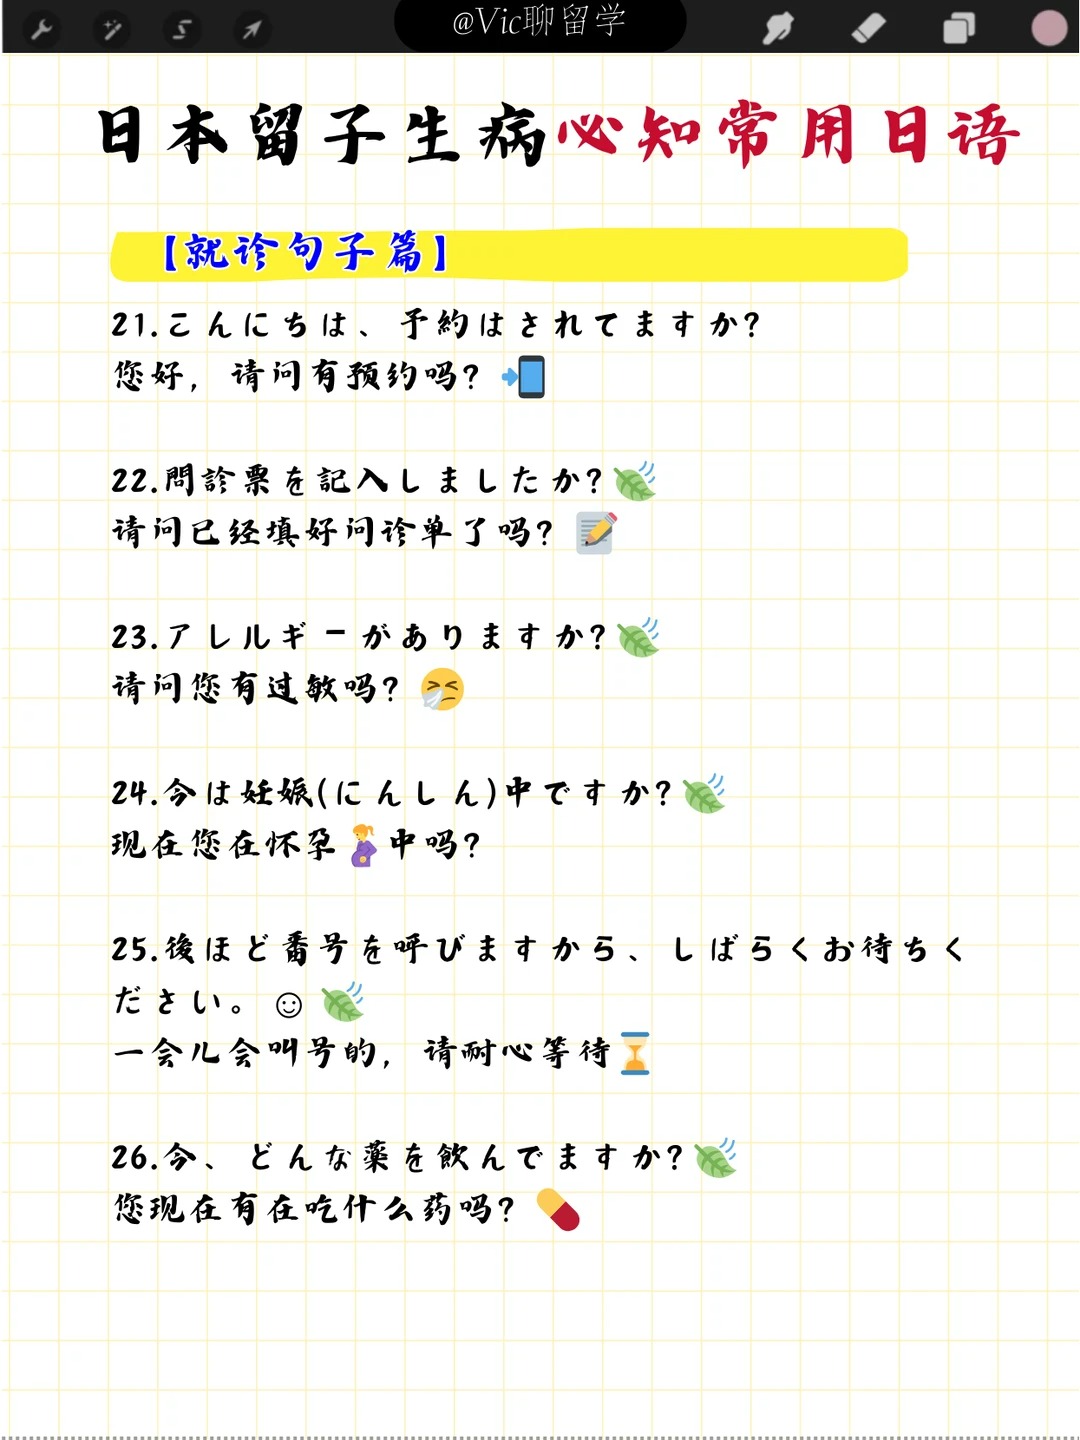 @Vic聊留学
日本留子生病必知常用日语
【就诊句子篇】
21.こんにちは、予約はされてますか?
您好,请问有预约吗?
22.問診票を記入しましたか?
请问已经填好问诊单了吗?
23.アレルギーがありますか?
请问您有过敏吗?
24.今は妊娠(にんしん)中ですか?
现在您在怀孕中吗?
25.後ほど番号を呼びますから、しばらくお待ちく
ださい。
一会儿会叫号的,请耐心等待
26.今、どんな薬を飲んでますか?
您现在有在吃什么药吗?